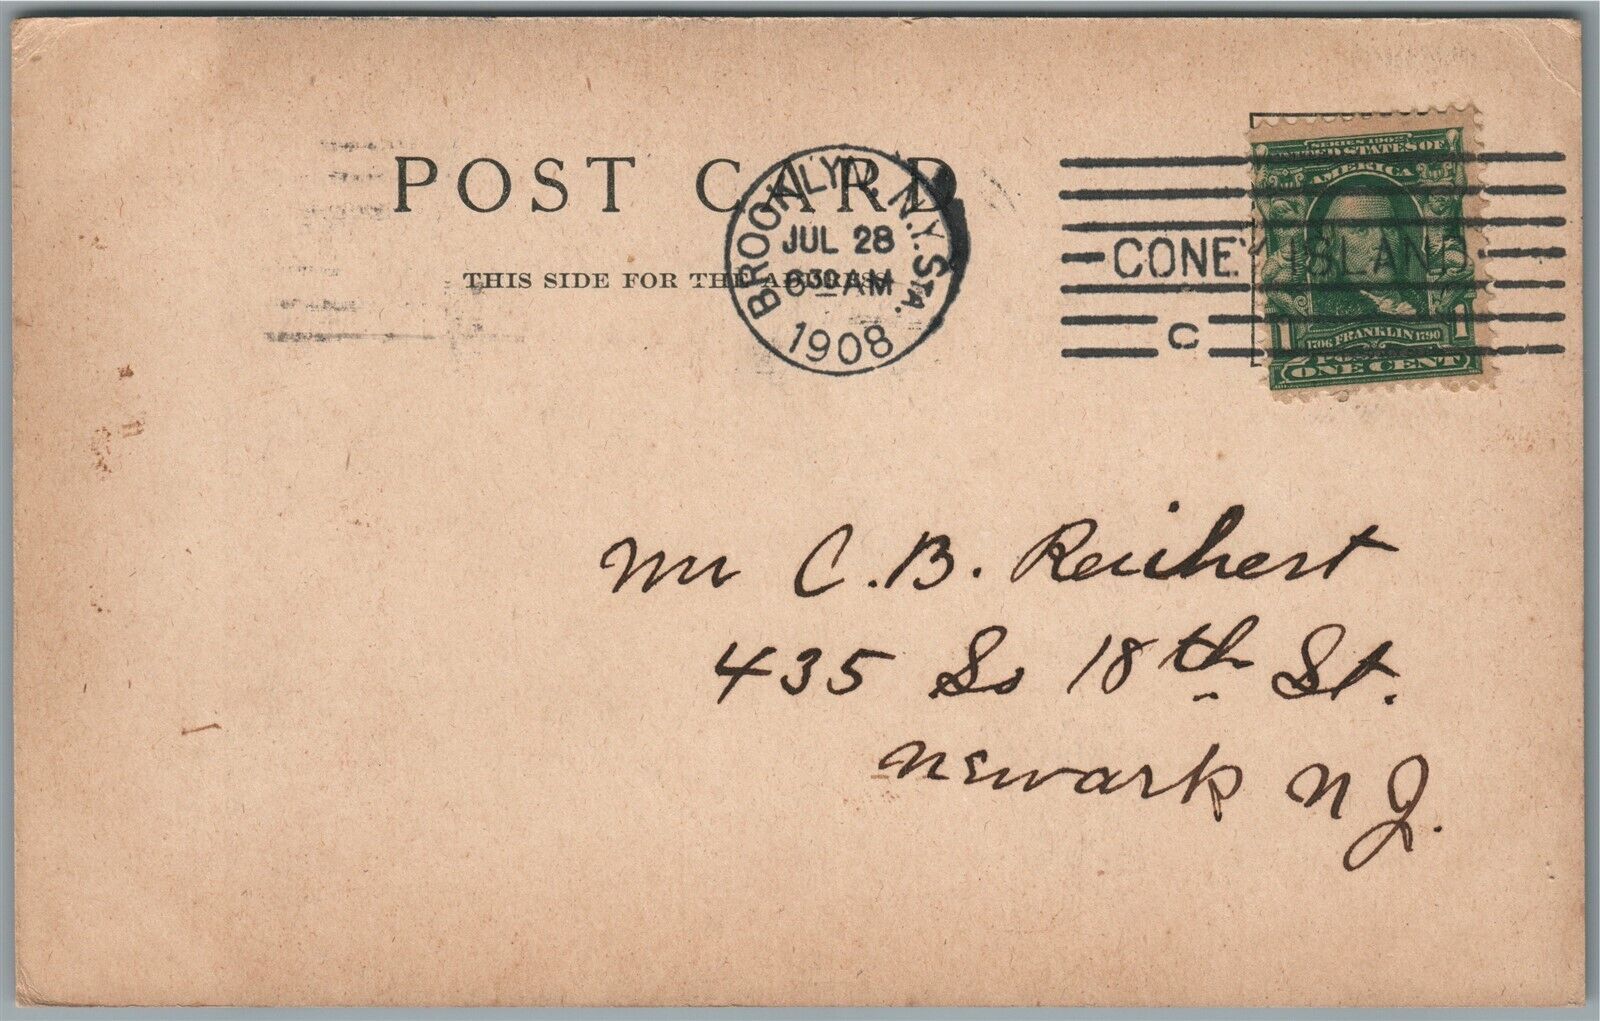 POST CARD
THIS SIDE FOR THE ADDRESS.
BROOKLYN, N.Y. STA.
JUL 28
6 30 AM
1908
CONEY ISLAND.
C
SERIES 1902
UNITED STATES OF
AMERICA
1 1706 FRANKLIN 1790 1
POSTAGE
ONE CENT
Mr C. B. Reichert
435 So 18th St.
Newark N J.